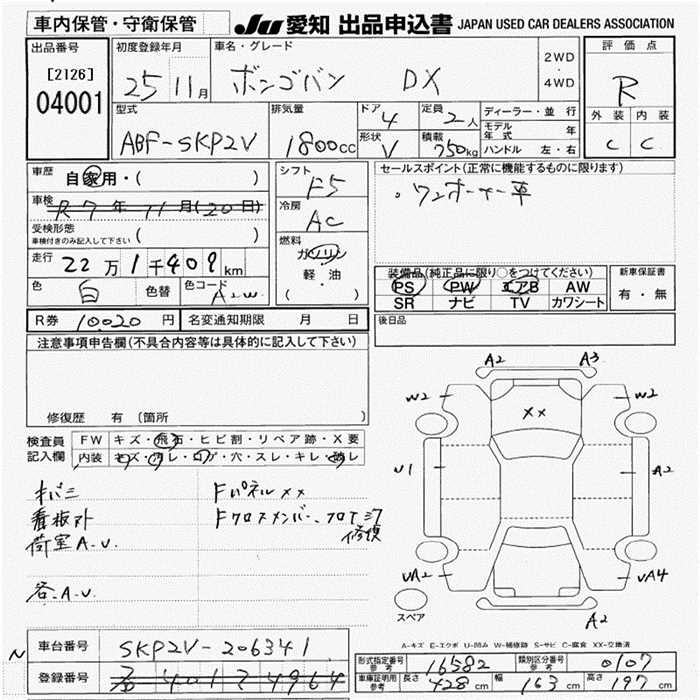 車内保管・守衛保管
JU 愛知 出品申込書 JAPAN USED CAR DEALERS ASSOCIATION
出品番号
[2126]
04001
初度登録年月
25 11月
車名・グレード
ボンゴバン DX
2WD
4WD
評価点
R
外装 内装
C C
型式
ABF-SKP2V
排気量
1800cc
ドア 4
形状 V
定員 2人
積載 750kg
ディーラー・並行
モデル年式 年
ハンドル 左・右
車歴 自家用・( )
車検 R7年11月(20日)
受検形態
車検付きのみ記入して下さい ( )
走行 22万1千409km
色 白 色替 色コード A2W
シフト
F5
冷房
AC
燃料
ガソリン
軽・油
( )
セールスポイント(正常に機能するものに限ります)
。ワンオーナー車
装備品(純正品に限り○をつけてください)
PS PW エアB AW
SR ナビ TV カワシート
新車保証書
有・無
R券 10020円 名変通知期限 月 日
後日品
注意事項申告欄(不具合内容等は具体的に記入して下さい)
修復歴 有 〔箇所
検査員記入欄
FW キズ・飛石・ヒビ割・リペア跡・X要
内装 キズ・汚レ・コゲ・穴・スレ・キレ・破レ
キバミ
看板外
荷室A.U.
各.A.U
FパネルXX
Fクロスメンバー、フロア
修復
A2 A3
W2 XX W2
U1 A2
UA2 UA4
A2
スペア
A-キズ E-エクボ U-凹み W-補修跡 S-サビ C-腐食 XX-交換済
N
車台番号 SKP2V-206341
登録番号
形式指定番号参考 16582 類別区分番号参考 0107
車庫証明用参考 長さ 428cm 幅 163cm 高さ 197cm